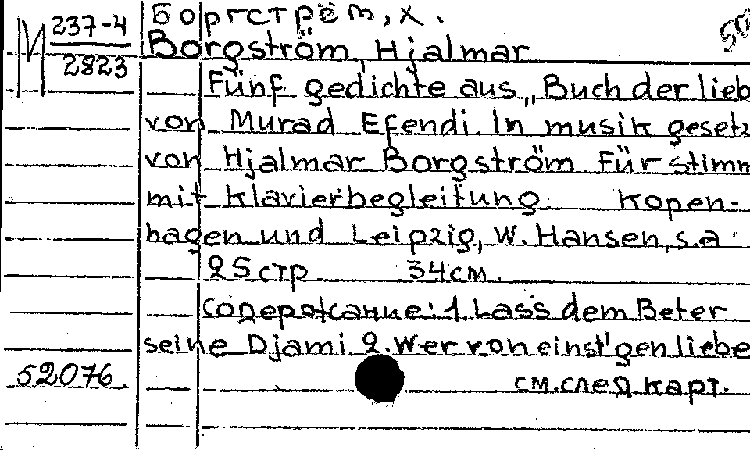 Боргстрём, Х.
М 237-4
2823
Borgström, Hjalmar
Fünf gedichte aus „Buch der lieb
von Murad Efendi. In musik gesetz
von Hjalmar Borgström Für stimm
mit klavierbegleitung Kopen-
hagen und Leipzig, W. Hansen, s.a
25 стр 34 см.
Содержание: 1. Lass dem Beter
seine Djami 2. Wer von einst'gen liebe
52076 см. след. карт.